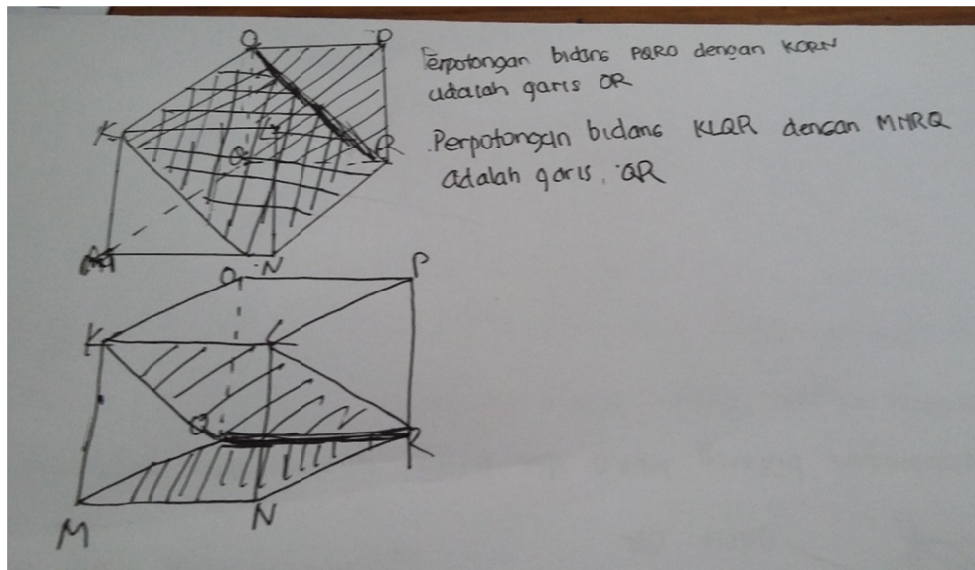 O
P
Perpotongan bidang PQRO dengan KORN
adalah garis OR
K
L
Q
R
Perpotongan bidang KLQR dengan MNRQ
adalah garis QR
M
N
O
P
K
L
Q
R
M
N